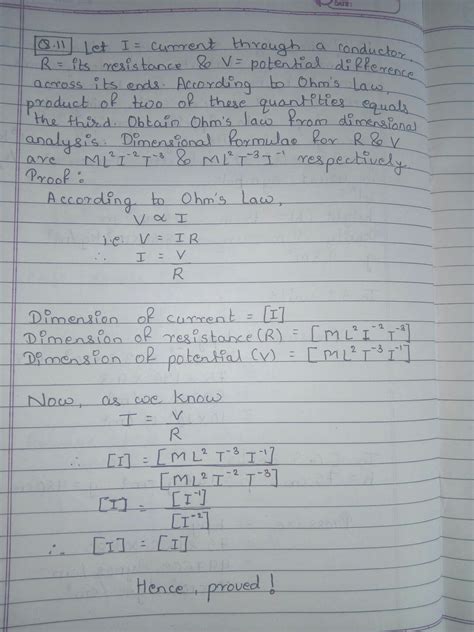 DATE:
Q.11 Let I = current through a conductor,
R = its resistance & V = potential difference
across its ends. According to Ohm's Law,
product of two of these quantities equals
the third. Obtain Ohm's law from dimensional
analysis. Dimensional formulae for R & V
are ML²I⁻²T⁻³ & ML²T⁻³I⁻¹ respectively.
Proof :
According to Ohm's Law,
V ∝ I
i.e V = IR
∴ I = V
R
Dimension of current = [I]
Dimension of resistance (R) = [ML²I⁻²T⁻³]
Dimension of potential (V) = [ML²T⁻³I⁻¹]
Now, as we know
I = V
R
∴ [I] = [ML²T⁻³I⁻¹]
[ML²I⁻²T⁻³]
[I] = [I⁻¹]
[I⁻²]
∴ [I] = [I]
Hence, proved !